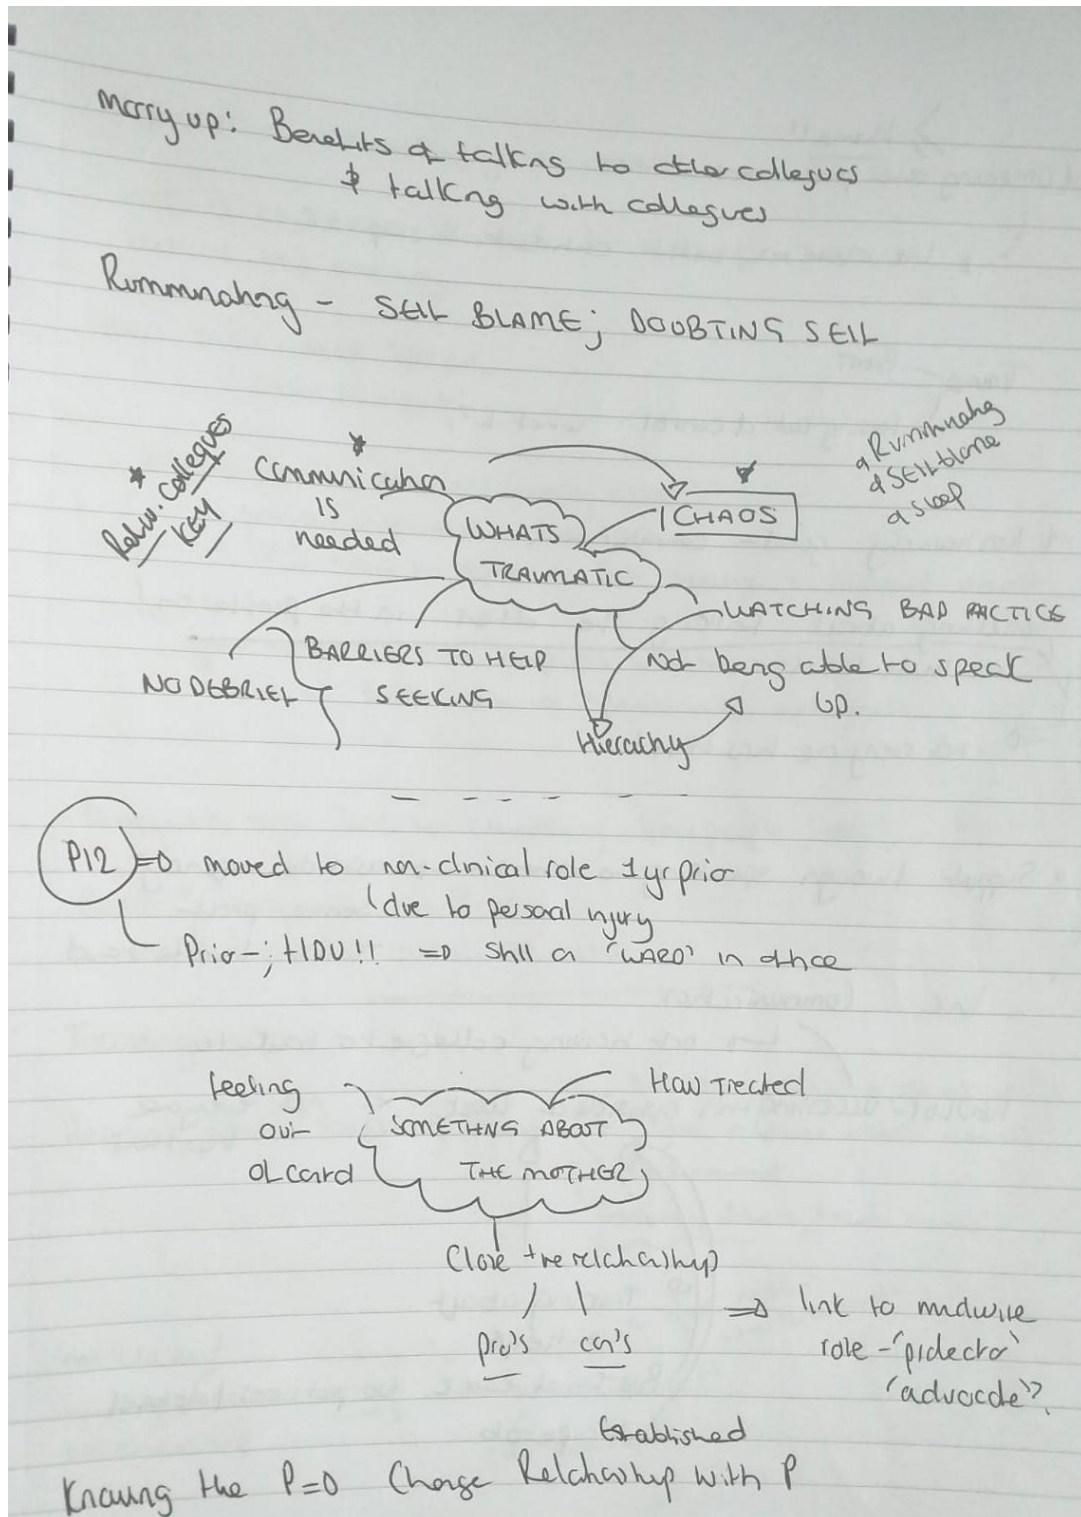 Marry up: Benefits of talking to other collegues
& talking with collegues
Rumminating - SELF BLAME; DOUBTING SELF
* Rel w. collegues KEY
* Communication
is
needed
* CHAOS
Rumminating
SELF blame
sleep
WHATS
TRAUMATIC
WATCHING BAD PACTICE
Not being able to speak
up.
BARRIERS TO HELP
SEEKING
NO DEBRIEF
Hierachy
P12 => moved to non-clinical role 1yr prior
(due to personal injury
Prior -; HDU!! => Still a 'WARD' in office
feeling
out
of card
How Treated
SOMETHING ABOUT
THE MOTHER
Close +ve relationship
pro's con's
=> link to midwife
role - 'protector'
'advocate'?
Established
Knowing the P => Change Relationship with P